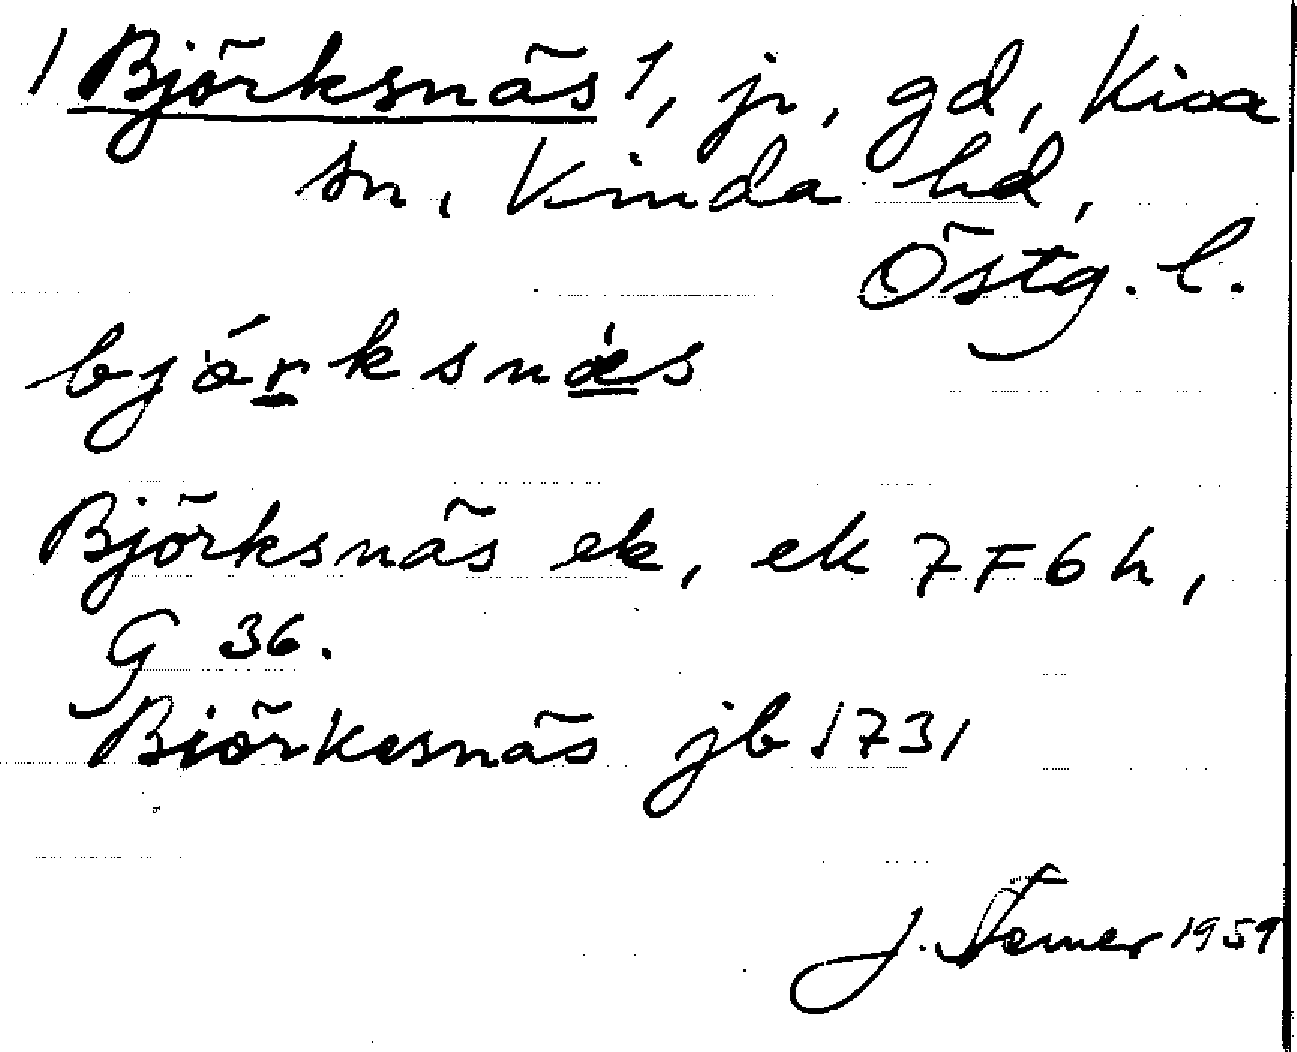 /Björksnäs/, jr, gd, Kisa
sn, Kinda hd,
Östg. l.
bjǿrksnæ̀s
Björksnäs ek, ek 7F6h,
G 36.
Biörkesnäs jb 1731
J. 1959